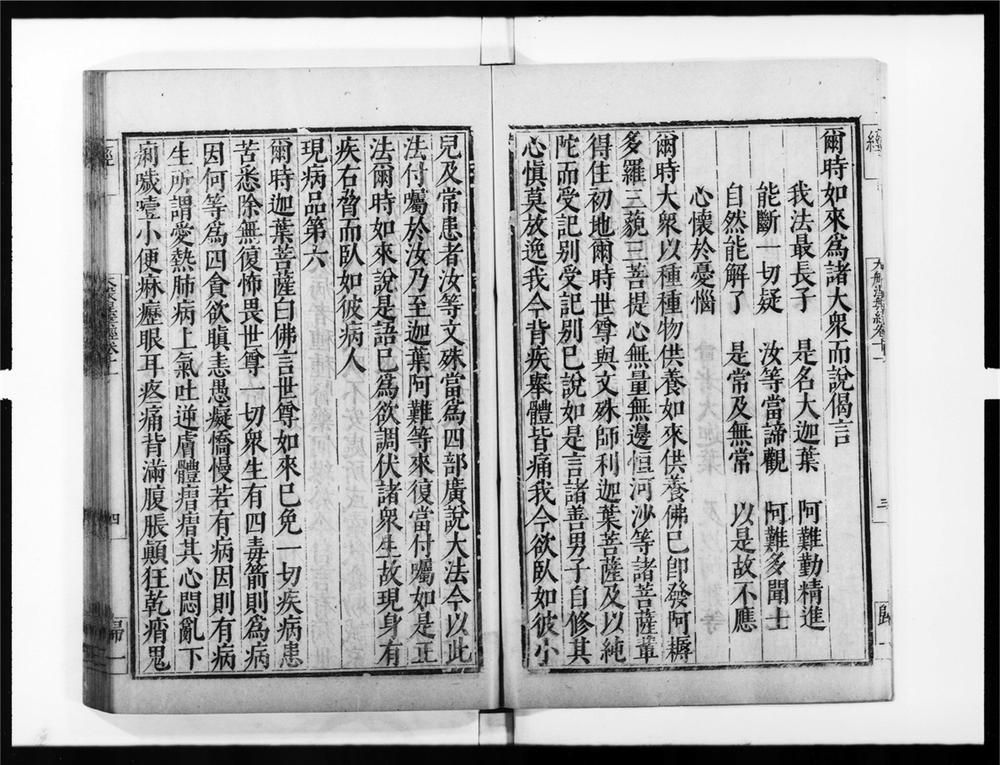 爾時如來爲諸大衆而說偈言
我法最長子　是名大迦葉　阿難勤精進
能斷一切疑　汝等當諦觀　阿難多聞士
自然能解了　是常及無常　以是故不應
心懷於憂惱
爾時大衆以種種物供養如來供養佛已卽發阿耨
多羅三藐三菩提心無量無邊恒河沙等諸菩薩輩
得住初地爾時世尊與文殊師利迦葉菩薩及以純
陀而受記別受記別已說如是言諸善男子自修其
心愼莫放逸我今背疾舉體皆痛我今欲臥如彼小
兒及常患者汝等文殊當爲四部廣說大法今以此
法付囑於汝乃至迦葉阿難等來復當付囑如是正
法爾時如來說是語已爲欲調伏諸衆生故現身有
疾右脅而臥如彼病人
現病品第六
爾時迦葉菩薩白佛言世尊如來已免一切疾病患
苦悉除無復怖畏世尊一切衆生有四毒箭則爲病
因何等爲四貪欲瞋恚愚癡憍慢若有病因則有病
生所謂愛熱肺病上氣吐逆膚體瘤瘤其心悶亂下
痢噦噎小便痳瀝眼耳疼痛背滿腹脹顚狂乾痟鬼